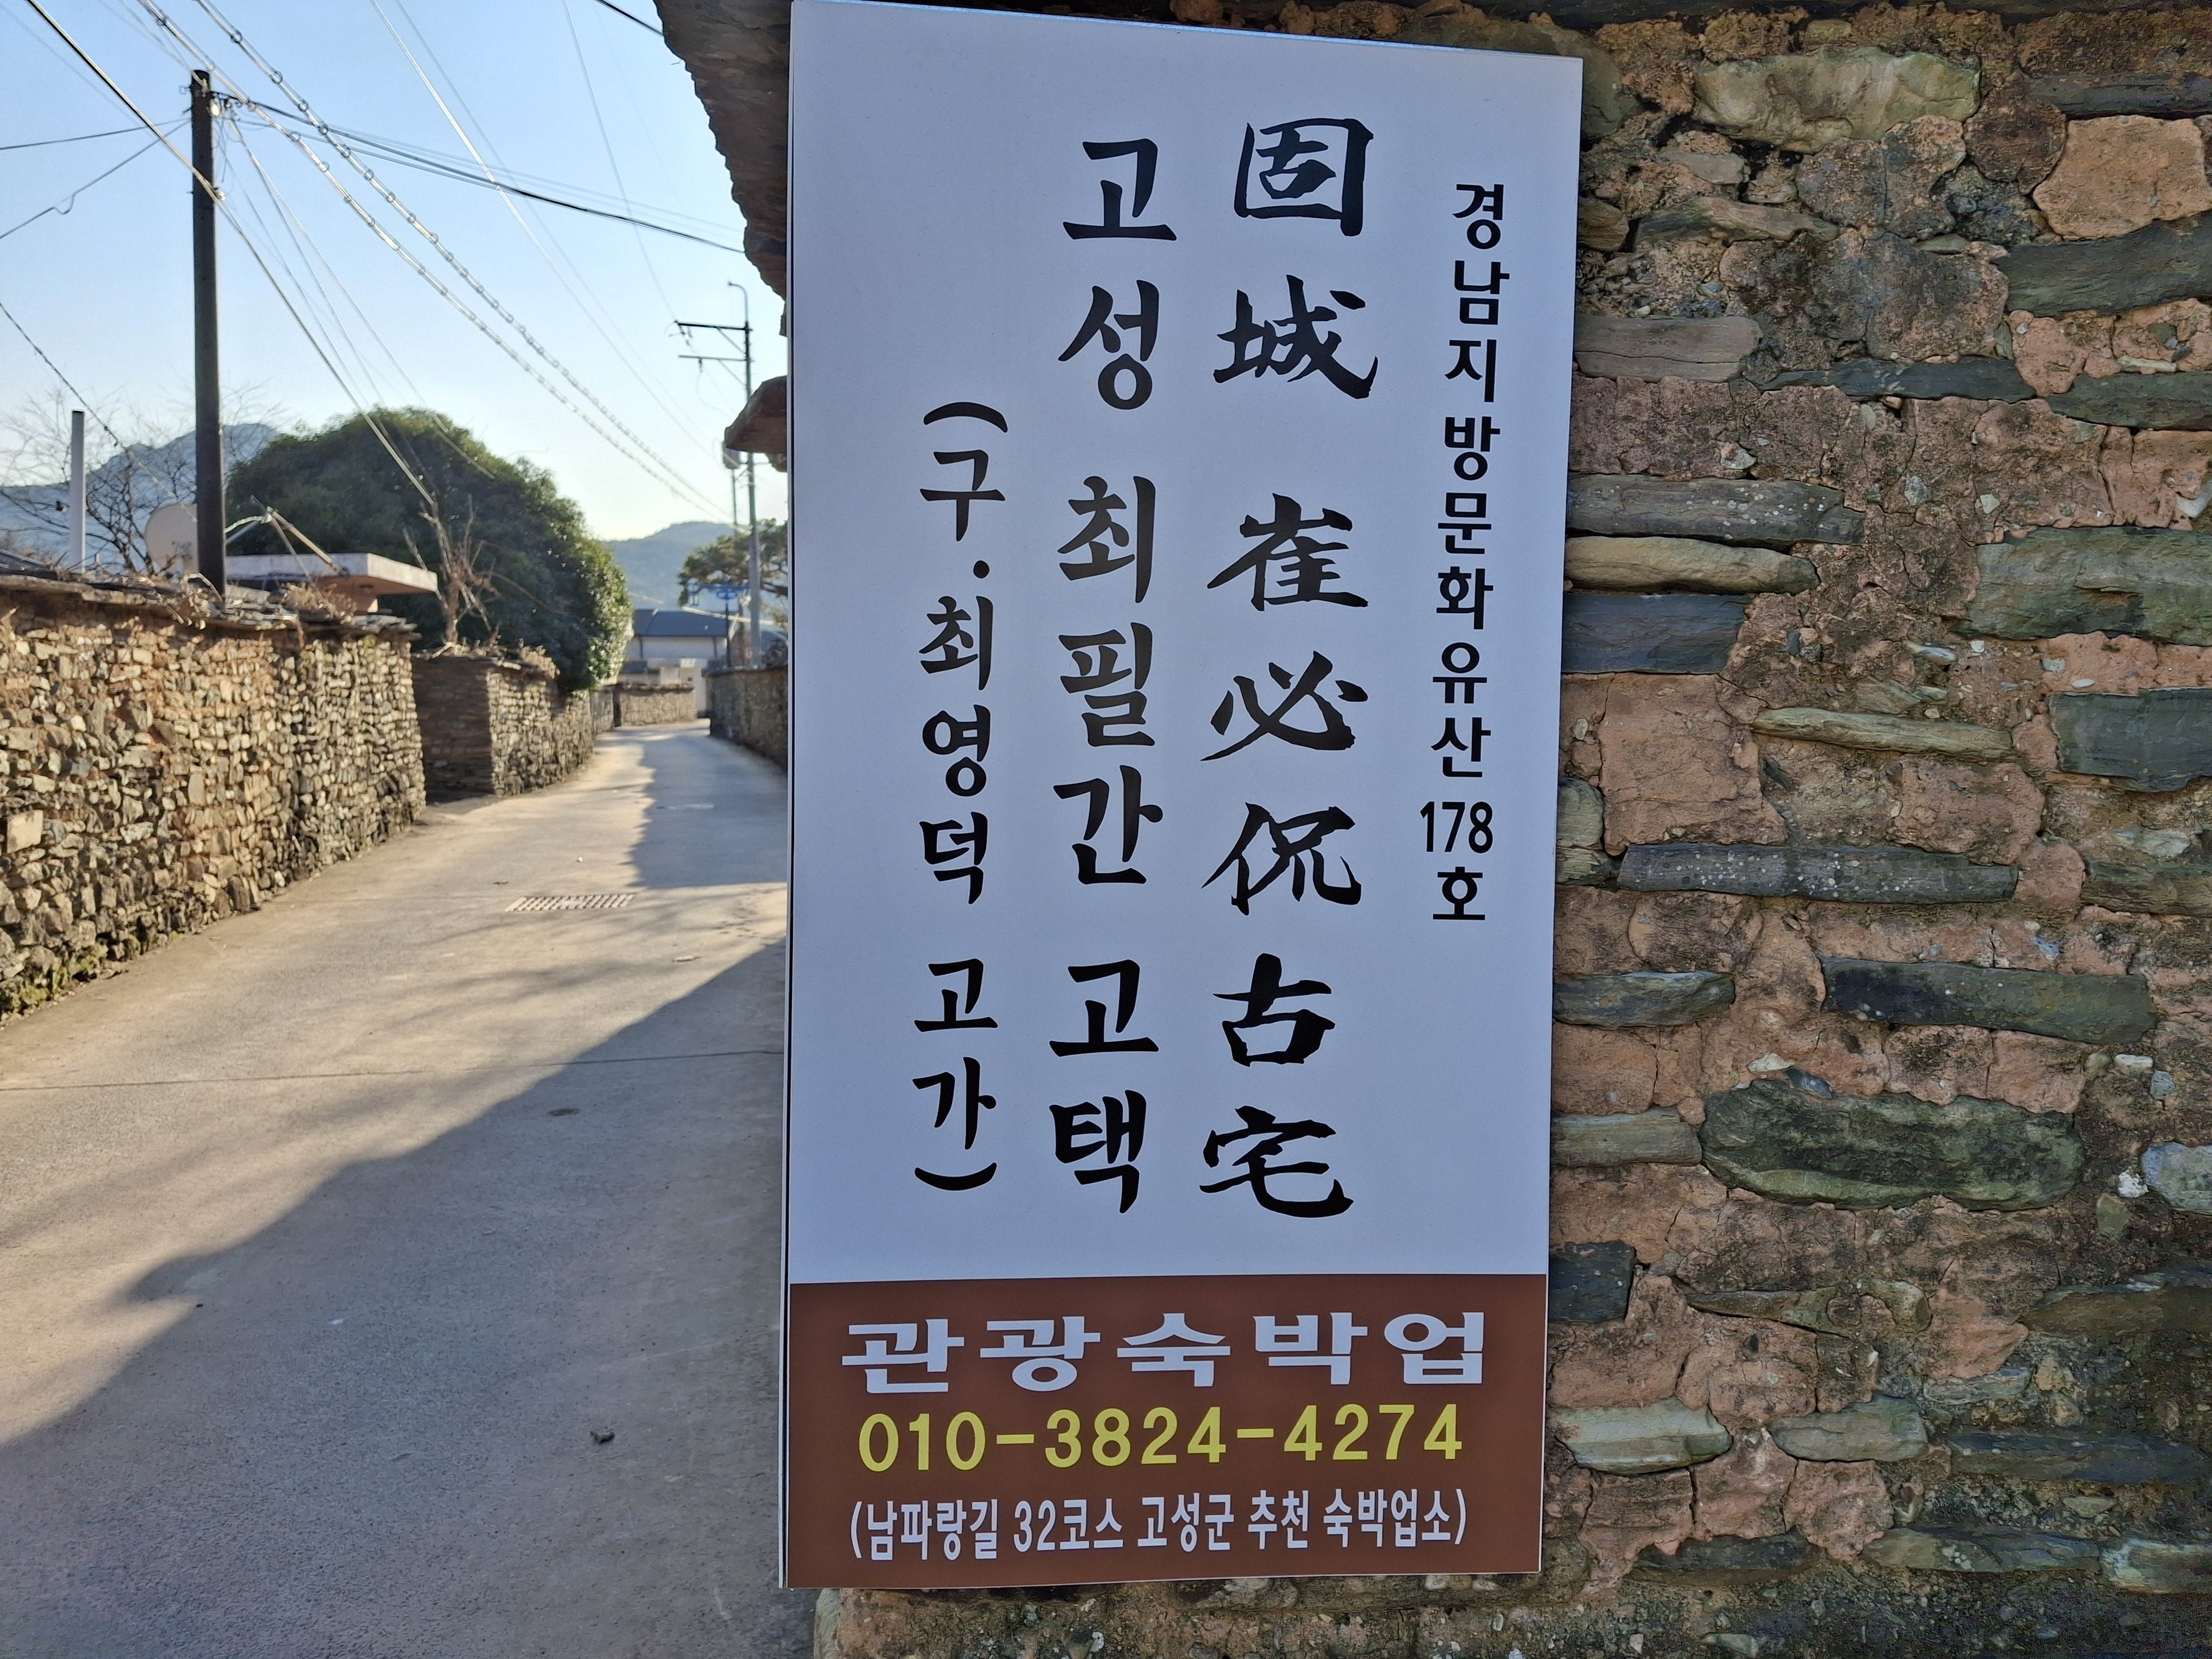 경남지방문화유산 178호
固城 崔必侃古宅
고성 최필간 고택
(구·최영덕 고가)
관광숙박업
010-3824-4274
(남파랑길 32코스 고성군 추천 숙박업소)